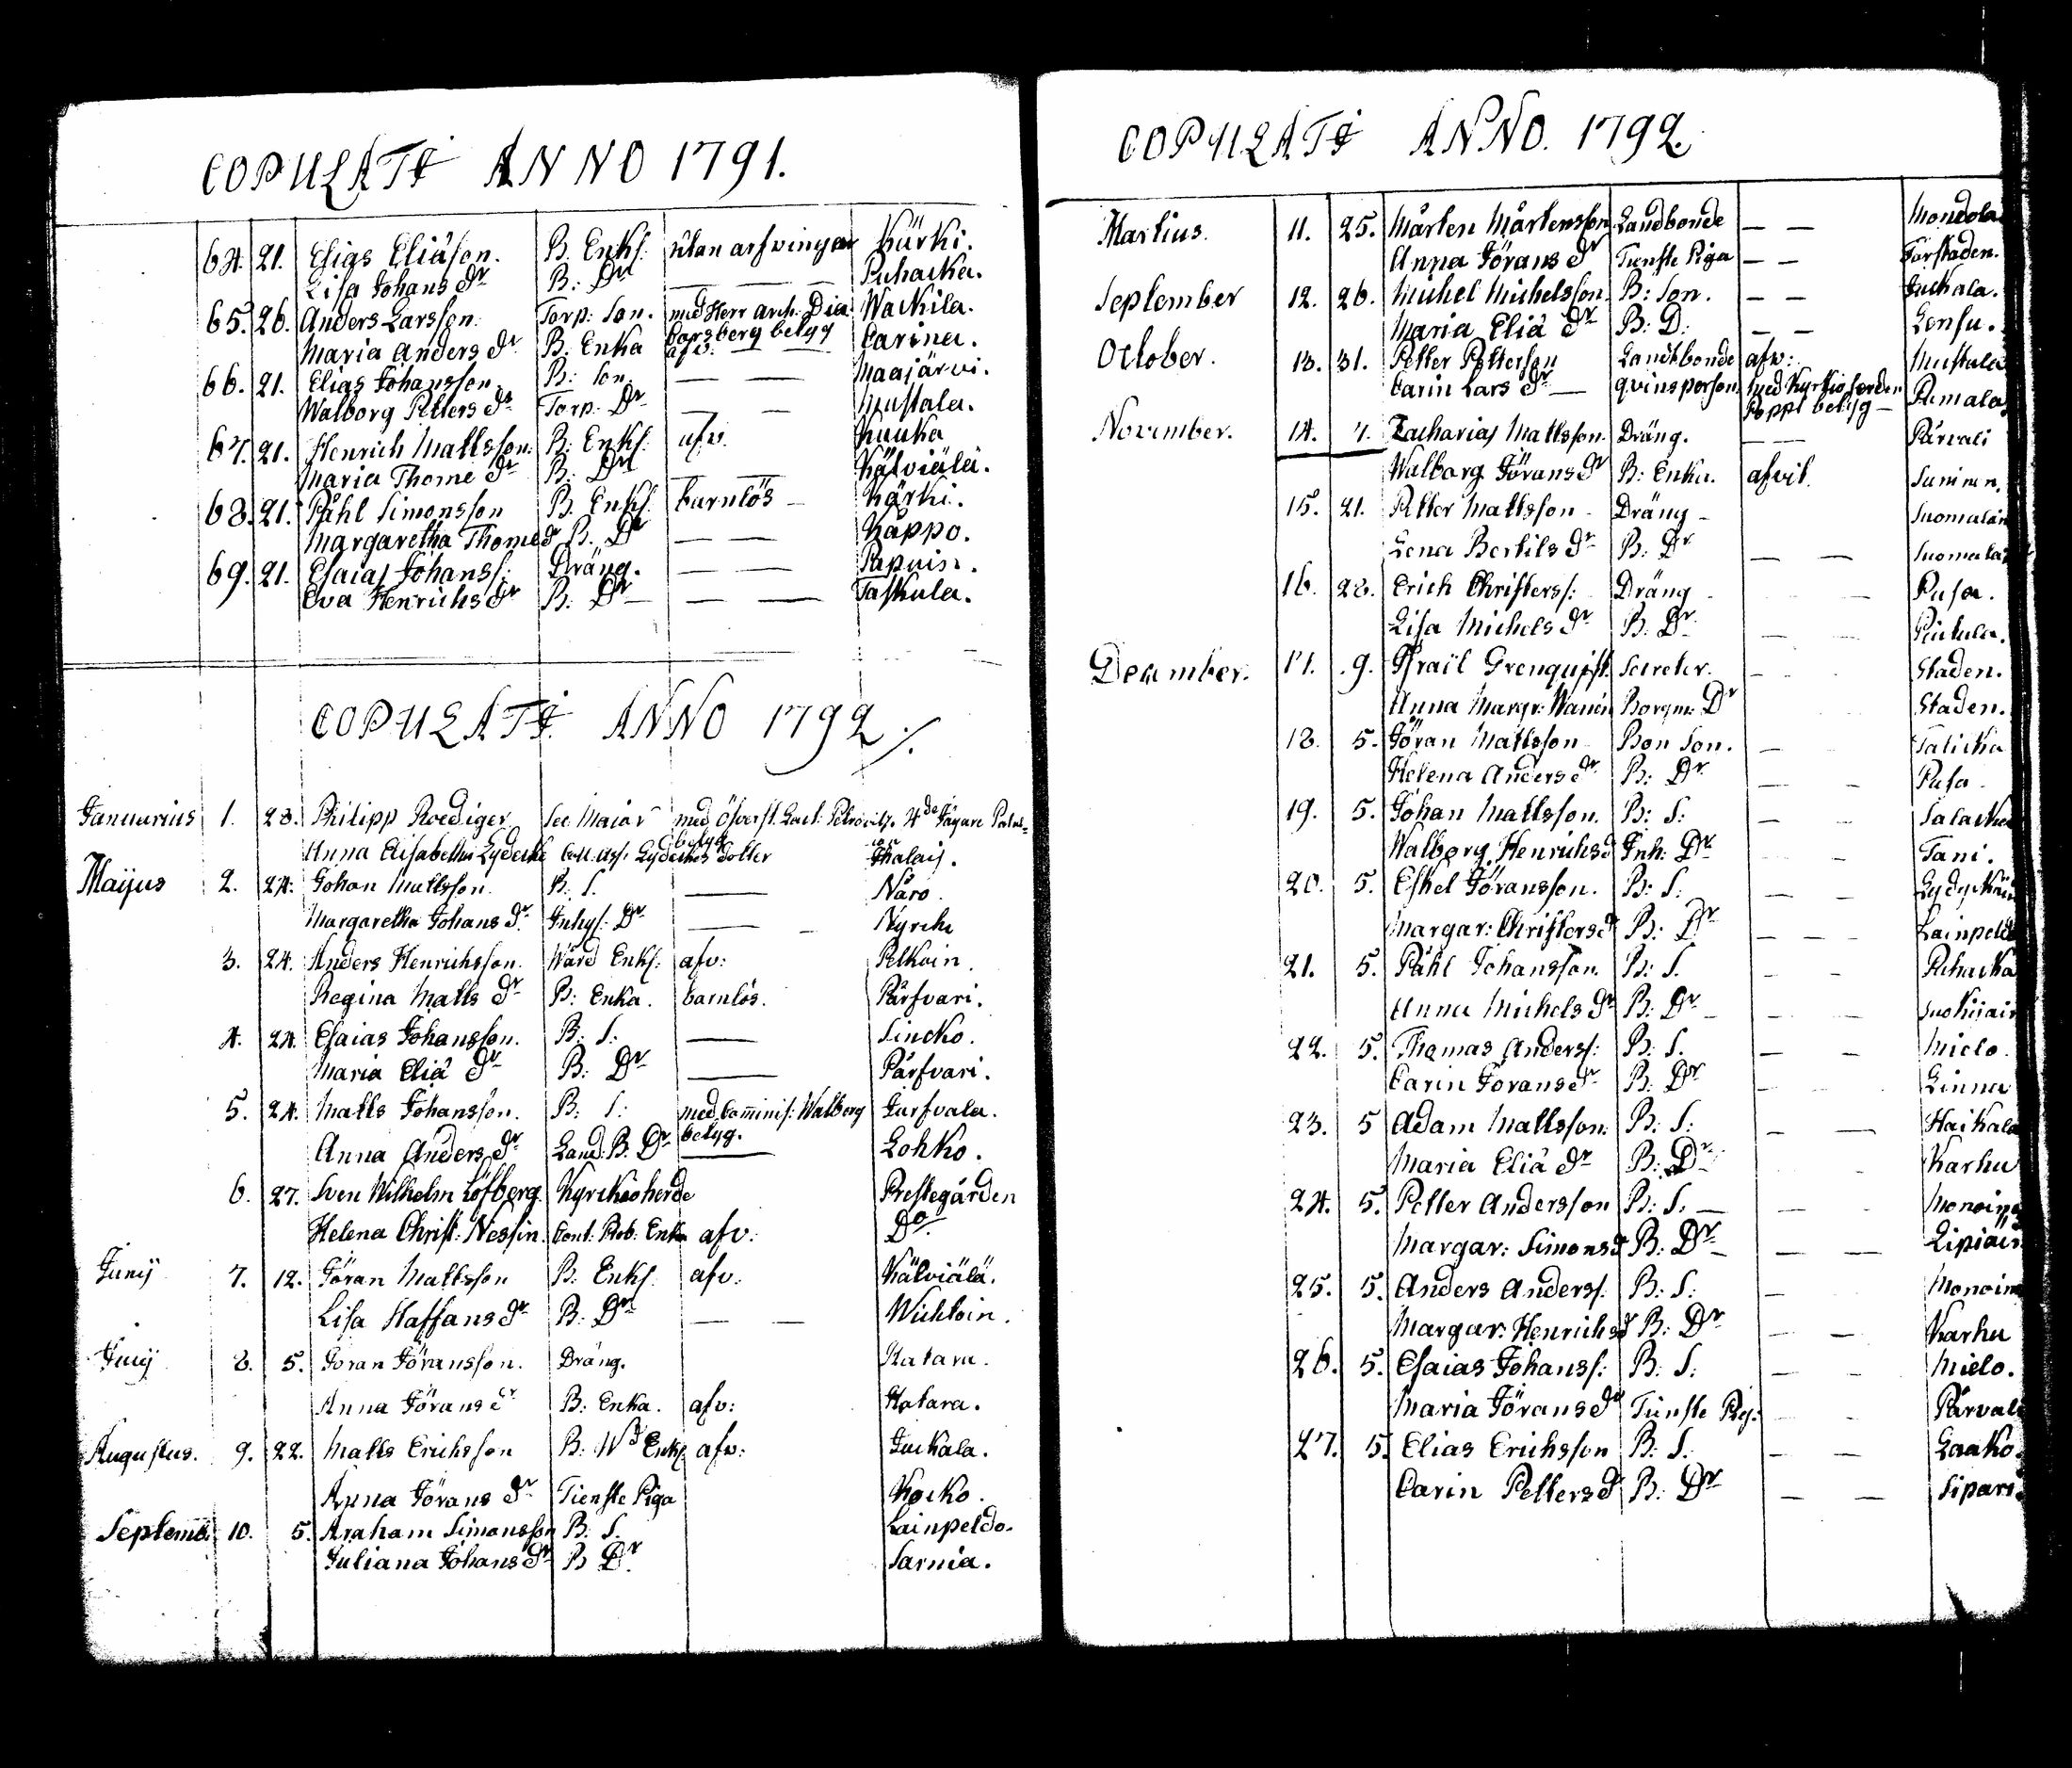 COPULATI ANNO 1791.
64. 21. Elias Eliäson. B. Enkl. utan arfvingar Kürki.
Lisa Johans Dr B: Dr — — — Puhacka.
65. 26. Anders Larsson. Torp: Son. med Herr Arch: Dia: Wackila.
Maria Anders Dr B. Enka Carsberg belyg Carina.
afv. — —
66. 21. Elias Johansson. B: Son. — — Maajärvi.
Walborg Petters Dr Torp: Dr — — Mustala.
67. 21. Henrich Mattsson: B: Enkl: afv. Kuuka
Maria Thome Dr B: Dr — — Käfviälä.
68. 21. Påhl Simonsson B. Enkl. barnlös — Kärki.
Margaretha Thome Dr B. Dr — — Käppo.
69. 21. Esaias Johanss: Dräng. — —
Eva Henrichs Dr B: Dr — — — Taskula.
COPULATI ANNO 1792.
Januarius 1. 28. Philipp Roediger Sec Maior med Öfverst. Petrovitz
belyg
Anna Elisabetha Lydecke Coll: Ass: Lydeckes Dotter
Maijus 2. 24. Johan Mattsson. B. S. — Näro.
Margaretha Johans Dr Inhys: Dr — — Kyrche
3. 24. Anders Henrichsson. Wärd Enkl: afv: Pelkoin.
Regina Matts Dr B: Enka. barnlös. Pärfvari.
4. 24. Esaias Johansson. B: S: — Sincko.
Maria Eliä Dr B: Dr — Pärfvari.
5. 24. Matts Johansson. B: S: med Comminis: Walberg Jurfvala.
belyg.
Anna Anders Dr Land: B: Dr — Lohko.
6. 27. Sven Wilhelm Löfberg. Kyrckioherde Prestegården
Helena Christ: Nessin. Cont: Prob: Enka afv: Do
Junij 7. 12. Göran Mattsson B: Enkl. afv: Kälviälä.
Lisa Staffans Dr B: Dr — — Wichtoin.
Julij 8. 5. Göran Göransson. Dräng. Katara.
Anna Görans Dr B: Enka. afv: Katara.
Augustus. 9. 22. Matts Erichsson B: Wd Enkl. afv: Juckala.
Anna Görans Dr Tienste Piga Kocko.
Septemb. 10. 5. Araham Simonsson B. S. Lainpeldo.
Juliana Johans Dr B Dr Sarnia.
COPULATI ANNO. 1792.
Martius. 11. 25. Mårten Mårtensson. Landbonde — — Mondola
Anna Görans Dr Tienste Piga — — Förstaden.
September 12. 26. Michel Michelsson. B: Son. — — Juckala.
Maria Eliä Dr B: D: — — Lensu.
October. 13. 31. Petter Pettersson Landtbonde afv: Mustala
Carin Lars Dr — qvinsperson. med Kyrkioherden Rumala
Poppi belyg —
November. 14. 7. Zacharias Mattsson. Dräng. — — Pärvali
Walborg Görans Dr B: Enka. afvit. Suninen.
15. 21. Petter Mattsson — Dräng — Suomalain
Lena Bertils Dr B: Dr — — Suomalai
16. 28. Erich Christerss: Dräng — — Pusa.
Lisa Michels Dr B: Dr — — Piutula.
December. 17. 9. Israïl Grenquist. Secreter. — — Staden.
Anna Margr: Wanén Borgm: Dr Staden.
18. 5. Göran Mattsson Bon Son. — — Talicka
Helena Anders Dr B: Dr — — Pusa.
19. 5. Johan Mattsson. B: S: Salacka
Walborg Henrichs d Inh: Dr Tani.
20. 5. Eskel Göransson. B: S: — —
Margar: Christers d B: Dr — — — Lainpeldo
21. 5. Påhl Johansson. B: S. — — Puhacka
Anna Michels Dr B: Dr — — —
22. 5. Thomas Anderss: B: S. — — Mielo.
Carin Görans Dr B: Dr — — Linna
23. 5 Adam Mattsson: B: S: — — Haikala
Maria Eliä Dr B: Dr — — Karhu
24. 5. Petter Andersson B: S. — — — Monoin
Margar: Simons d B: Dr — — — Lipiäi
25. 5. Anders Anderss: B: S: — Monoin
Margar: Henrichs d B: Dr — — Karhu
26. 5. Esaias Johanss: B: S: — — Mielo.
Maria Görans Dr Tienste Pig: — — Pärvali
27. 5. Elias Erichsson B: S. — — Laako.
Carin Petters d B: Dr — — Sipari.